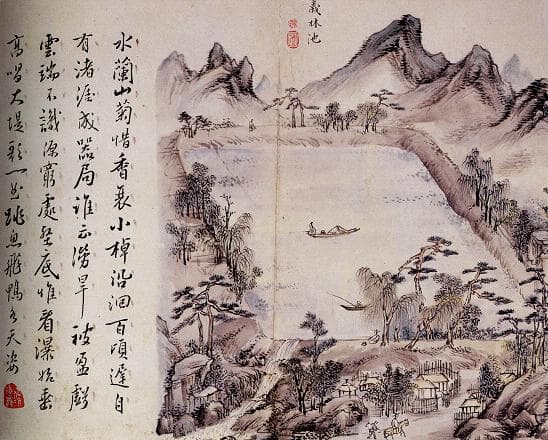 義林池
水蘭山菊惜香衰小棹沿洄百頃遲自
有渚涯成器局誰云澇旱被盈虧
雲端不識源窮處壑底惟看瀑始垂
高唱大堤歌一曲跳魚飛鴨各天姿